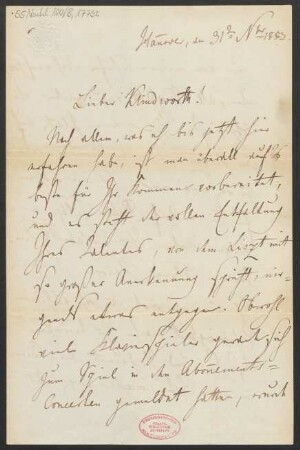 Lieber Klindworth!
Nach allem, was ich bis jetzt hier
erfahren habe, ist man überall aufs
beste für Ihr Kommen vorbereitet,
und es steht der vollen Entfaltung
Ihres Talentes, von dem Liszt mit
so großer Anerkennung spricht, nir-
gends etwas entgegen. Obwohl
viele Klavierspieler gerade sich
zum Spiel in den Abonnements-
Concerten gemeldet hatten, wurde